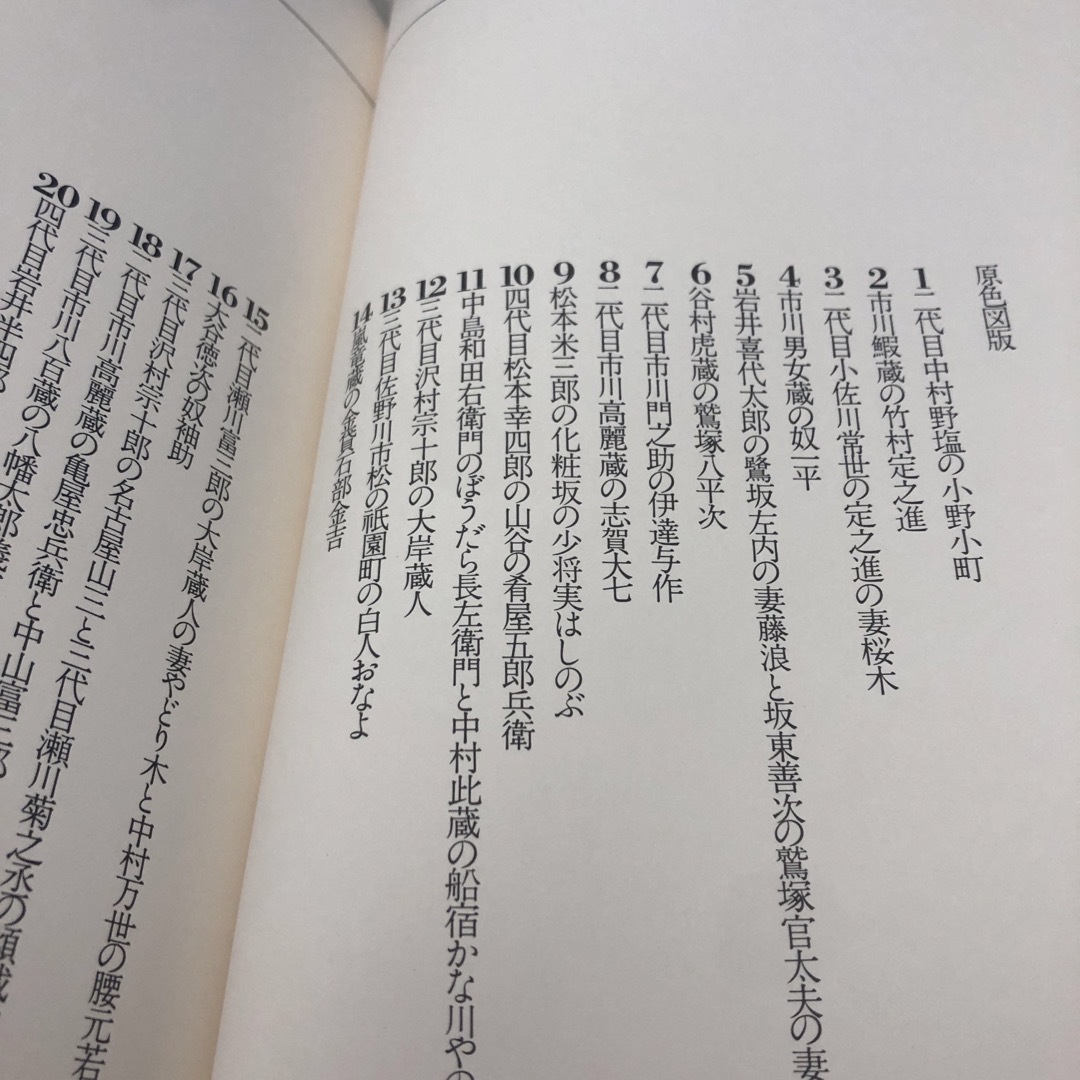 原色図版
1 二代目中村野塩の小野小町
2 市川鰕蔵の竹村定之進
3 二代目小佐川常世の定之進の妻桜木
4 市川男女蔵の奴一平
5 岩井喜代太郎の鷺坂左内の妻藤浪と坂東善次の鷲塚官太夫の妻
6 谷村虎蔵の鷲塚八平次
7 二代目市川門之助の伊達与作
8 二代目市川高麗蔵の志賀大七
9 松本米三郎の化粧坂の少将実はしのぶ
10 四代目松本幸四郎の山谷の肴屋五郎兵衛
11 中島和田右衛門のぼうだら長左衛門と中村此蔵の船宿かな川やの
12 三代目沢村宗十郎の大岸蔵人
13 三代目佐野川市松の祇園町の白人おなよ
14 嵐竜蔵の金貸石部金吉
15 二代目瀬川富三郎の大岸蔵人の妻やどり木と中村万世の腰元若
16 大谷徳次の奴袖助
17 三代目沢村宗十郎の名古屋山三と三代目瀬川菊之丞の傾城
18 二代目市川高麗蔵の亀屋忠兵衛と中山富三郎
19 三代目市川八百蔵の八幡太郎義
20 四代目岩井半四郎